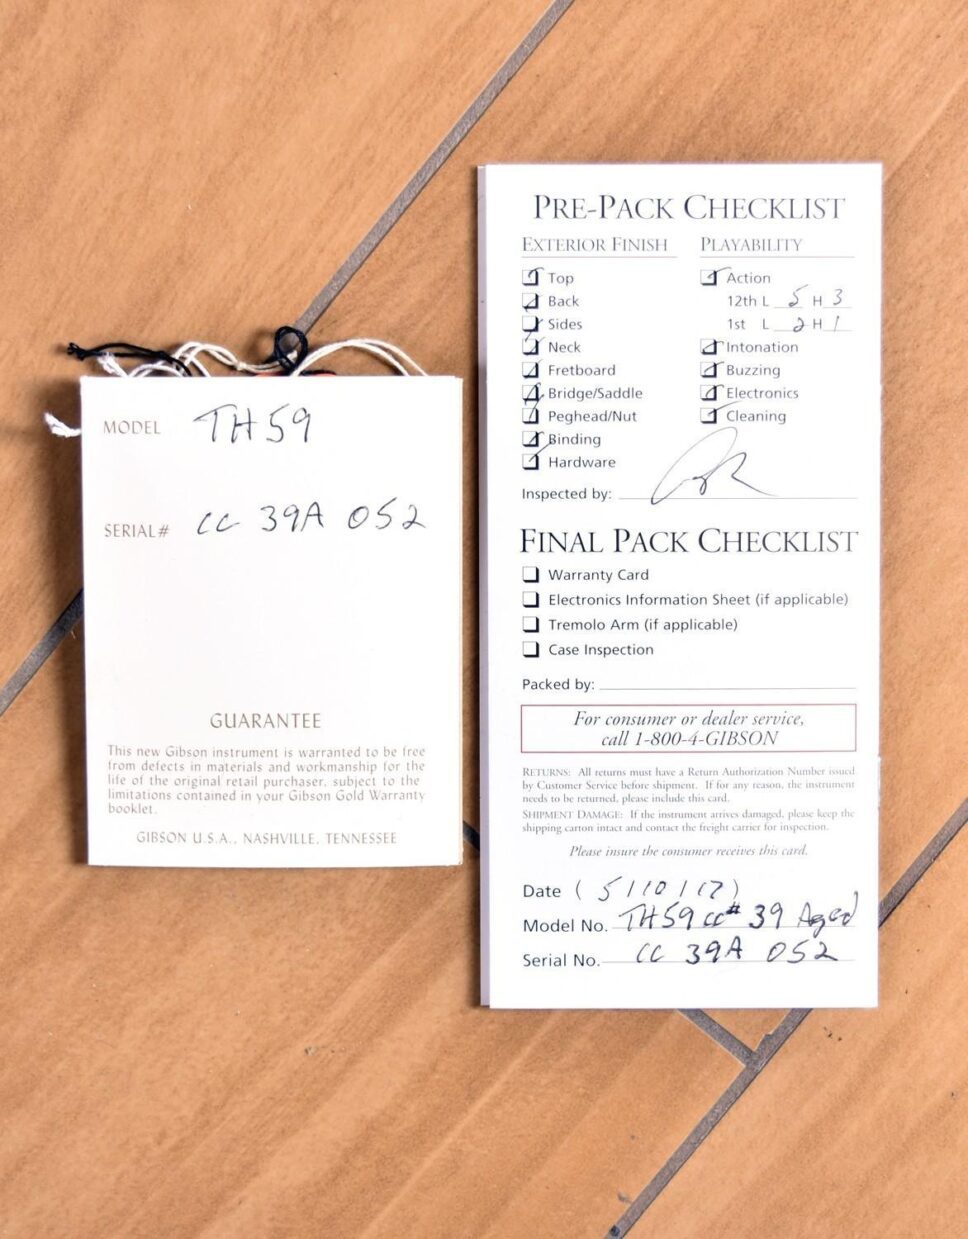 MODEL TH59
SERIAL# CC 39A 052
GUARANTEE
This new Gibson instrument is warranted to be free
from defects in materials and workmanship for the
life of the original retail purchaser, subject to the
limitations contained in your Gibson Gold Warranty
booklet.
GIBSON U.S.A., NASHVILLE, TENNESSEE
PRE-PACK CHECKLIST
EXTERIOR FINISH
Top
Back
Sides
Neck
Fretboard
Bridge/Saddle
Peghead/Nut
Binding
Hardware
PLAYABILITY
Action
12th L 5 H 3
1st L 2 H 1
Intonation
Buzzing
Electronics
Cleaning
Inspected by:
FINAL PACK CHECKLIST
Warranty Card
Electronics Information Sheet (if applicable)
Tremolo Arm (if applicable)
Case Inspection
Packed by:
For consumer or dealer service,
call 1-800-4-GIBSON
RETURNS: All returns must have a Return Authorization Number issued
by Customer Service before shipment. If for any reason, the instrument
needs to be returned, please include this card.
SHIPMENT DAMAGE: If the instrument arrives damaged, please keep the
shipping carton intact and contact the freight carrier for inspection.
Please insure the consumer receives this card.
Date ( 5/10/17 )
Model No. TH59 CC# 39 Aged
Serial No. CC 39A 052